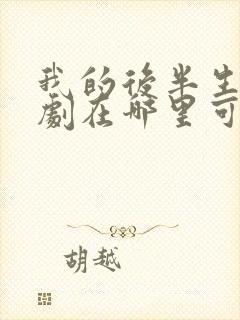 我的後半生
劇在哪里可
胡越